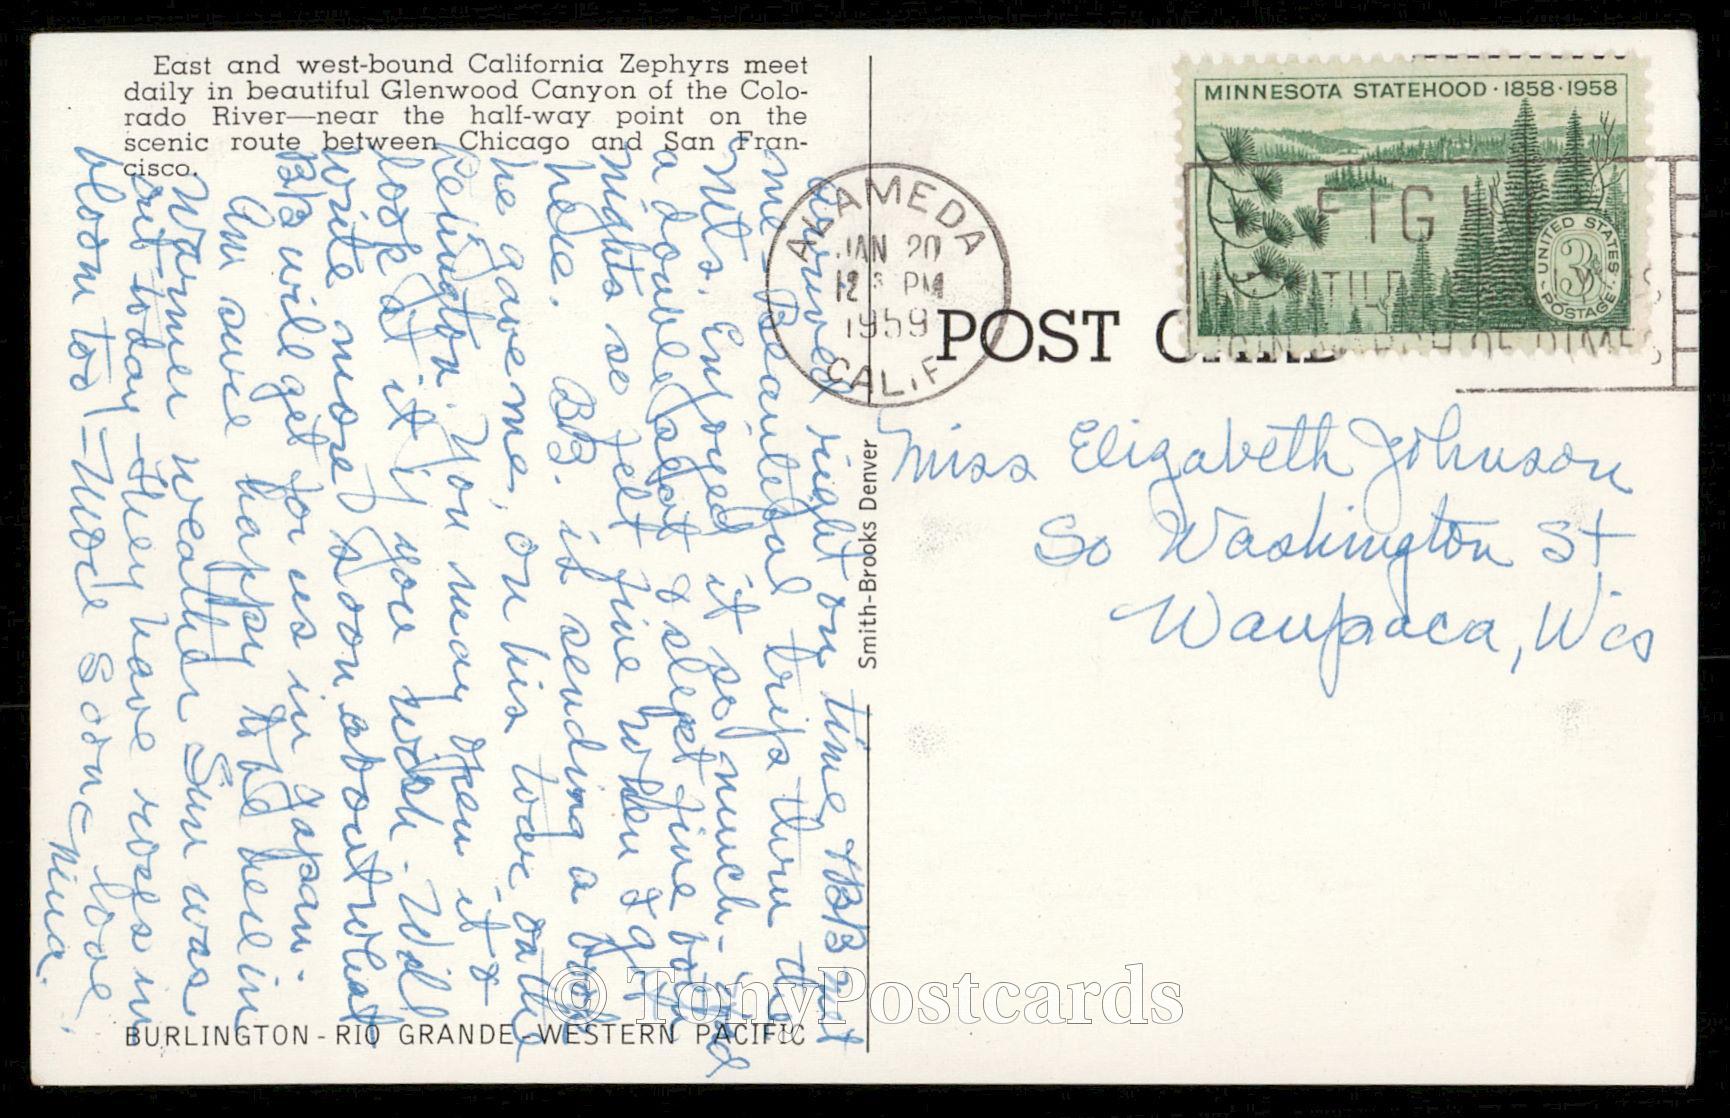 East and west-bound California Zephyrs meet
daily in beautiful Glenwood Canyon of the Colo-
rado River—near the half-way point on the
scenic route between Chicago and San Fran-
cisco.
BURLINGTON - RIO GRANDE - WESTERN PACIFIC
Smith-Brooks Denver
POST CARD
MINNESOTA STATEHOOD · 1858 · 1958
UNITED STATES POSTAGE
3¢
ALAMEDA
JAN 20
12 PM
1959
CALIF
FIGHT
MARCH OF DIMES
Miss Elizabeth Johnson
So Washington St
Waupaca, Wis
Arrived right on time, BB met
me. Beautiful trip thru the
Mts. Enjoyed it so much - Had
a double seat & slept fine both
nights so felt fine when I got
here. BB. is sending a book
he gave me, on his tour at
Remington. You may open it &
look at it if you wish. Will
write more soon about what
BB will get for us in Japan.
Am sure happy to be here in
Warmer weather Sun was
out today - They have roses in
bloom too! = More Soon - Love,
Nina.
© TonyPostcards